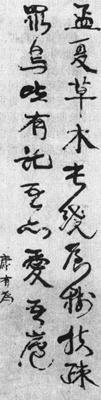 孟夏草木長繞屋樹扶疎
眾鳥欣有託吾亦愛吾廬
康有為